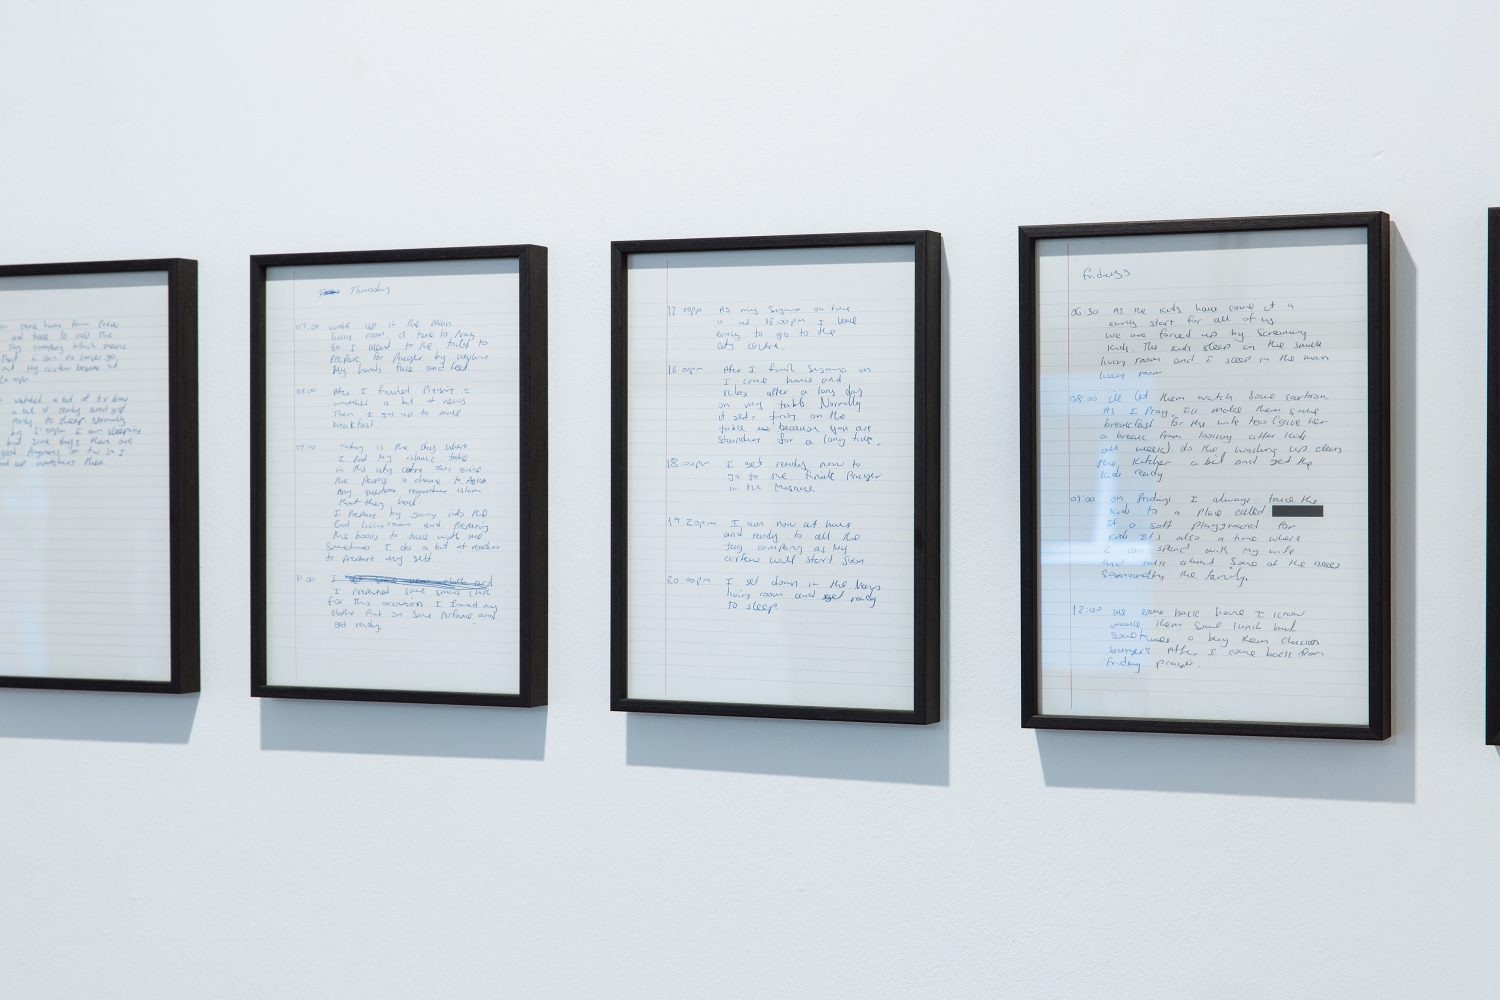 come home from
and have to call the
tag company which means
that I can no longer go
out My curfew begins at
watched a bit of t.v may
a bit of reading and get
ready to sleep Normally
by I am sleeping
but some days there are
good programs on tv so I
end up watching them.
Thursday
07.00 wake up in the main
living room it time to Pray
so I went to the toilet to
Prepare for Prayer by washing
My hands face and feet.
08:00 After I finished Prayer I
watched a bit of news
Then I get up to make
breakfast.
09:00 Today is the day where
I Put My islamic table
in the city centre this gives
the People a chance to
Any question regarding islam
that they have
I Prepare by going into the
living room and Preparing
the books to take with me
Sometimes I do a bit of
to prepare my self
11:00 I
I some smart cloth
for this occasion. I Ironed my
clothes Put on some Perfume and
get ready
12 00pm As my on time
is at 15.00pm I leave
early to go to the
city centre.
16 00pm After I finish on
I come home and
relax after a long day
on my table Normally
it gets tiring on the
table because you are
standing for a long time.
18.00pm I get ready now to
go to the Prayer
in the Mosque.
19.20pm I am now at home
and ready to call the
tag company as My
curfew will start soon
20:00pm I sit down in the Main
living room and ready
to sleep.
fridays
06 30 As the kids have come it a
early start for all of us
we are forced up by Screaming
kids The kids sleep in the small
living room and I sleep in the main
living room
08:00 let them watch Some cartoon
As I Pray. I'll make them some
breakfast for My wife too (give her
a break from looking after kids
all week) do the washing up clean
the kitchen a bit and get the
kids ready
09:00 on fridays I always take the
kids to a place called
It a soft playground for
kids it's also a time where
I can spend with My wife
and talk about Some of the issues
Surrounding the family.
12:00 we come back home I
make them Some lunch but
Sometimes a buy them chicken
burgers After I come back from
friday prayer.